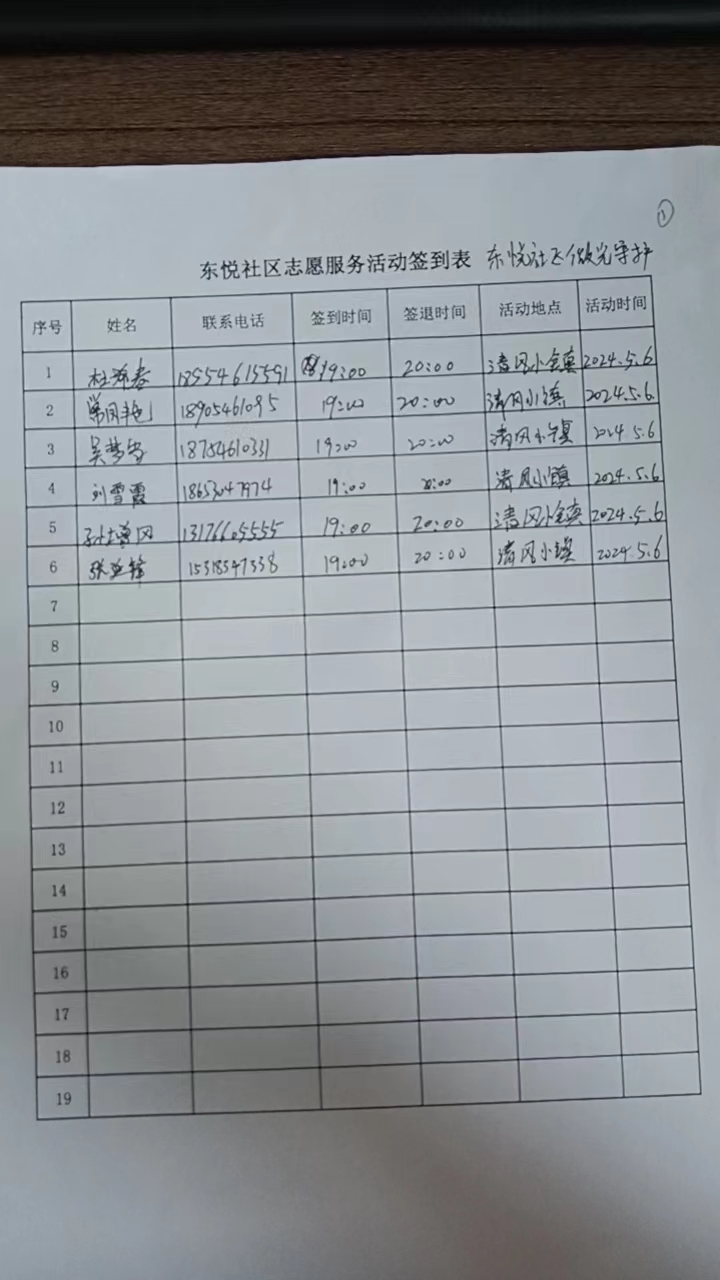 ①
东悦社区志愿服务活动签到表 东悦社区微光守护
序号 姓名 联系电话 签到时间 签退时间 活动地点 活动时间
1 19:00 20:00 清风小镇 2024.5.6
2 18905461095 19:00 20:00 清风小镇 2024.5.6
3 18754610331 19:00 20:00 清风小镇 2024.5.6
4 刘雪霞 18653047974 19:00 20:00 清风小镇 2024.5.6
5 13176605555 19:00 20:00 清风小镇 2024.5.6
6 15318347338 19:00 20:00 清风小镇 2024.5.6
7
8
9
10
11
12
13
14
15
16
17
18
19